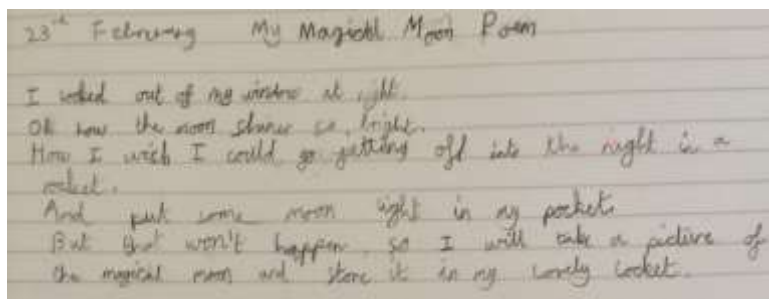 23rd February My Magical Moon Poem
I looked out of my window at night.
Oh how the moon shines so bright.
How I wish I could go jetting off into the night in a
rocket.
And put some moon light in my pocket.
But that won't happen, so I will take a picture of
the magical moon and store it in my lovely locket.